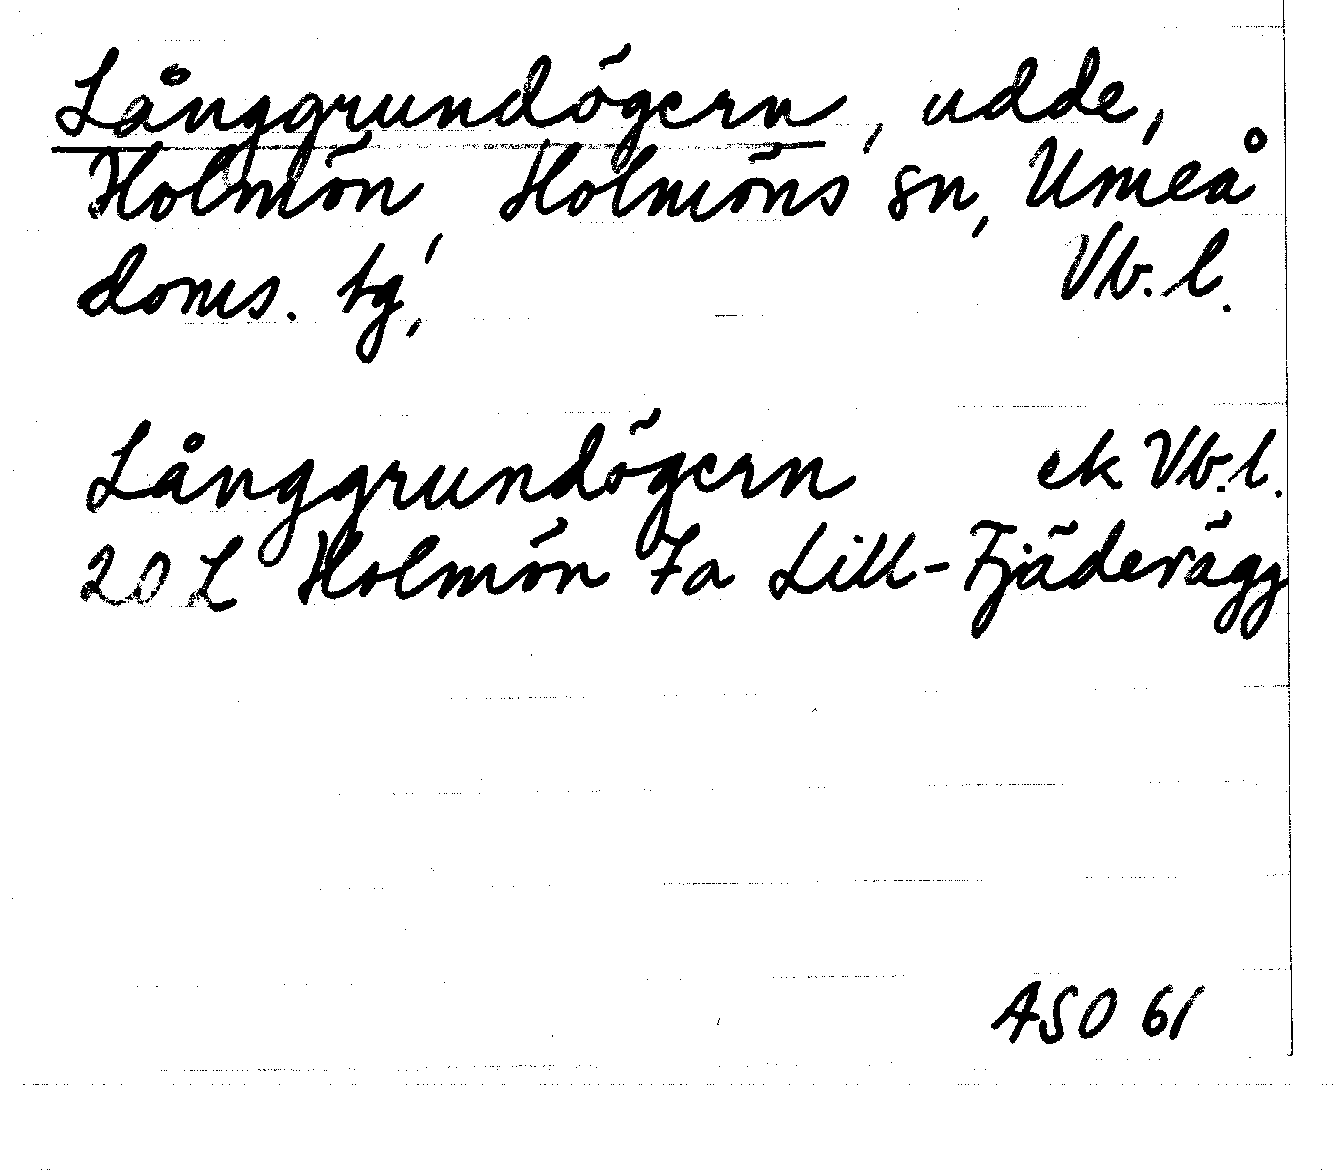 Långgrundögern, udde,
Holmön, Holmöns sn, Umeå
doms. tg, Vb. l.
Långgrundögern ek Vb. l.
20 L Holmön 7a Lill-Fjäderägg
ASO 61